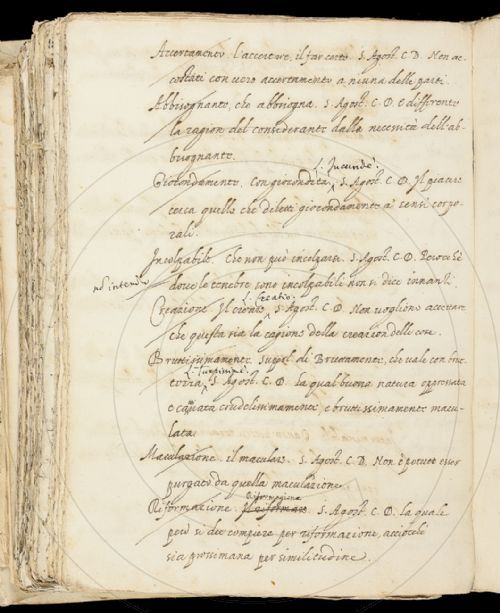 Accertamento. L'accertare, il far certo. S. Agost. C. D. Non ac-
costati con vero accertamento a niuna delle parti.
Abbisognante, che abbisogna. S. Agost. C. D. è differente
la ragion del considerante dalla necessità dell'ab-
bisognante.
L. Jucundè.
Giocondamente. Con giocondità. S. Agost. C. D. Il piacere
cerca quello che diletti giocondamente a' sensi corpo-
rali.
Incolpabile. Che non può incolparsi. S. Agost. C. D. Perocchè
no intendo
dove le tenebre sono incolpabili non si dice innanzi.
L. Creatio.
Creazione. Il creare. S. Agost. C. D. Non vogliono accettare
che questa sia la cagione della creazion delle cose.
Bruttissimamente. Superl. di Bruttamente, che vale con brut-
L. Turpissimè.
tezza. S. Agost. C. D. La qual buona natura oppressata
e cavata crudelissimamente, e bruttissimamente macu-
lata.
Maculazione. il maculare. S. Agost. C. D. Non è potuto esser
purgato da quella maculazione.
Riformagione
Riformazione. Il riformare S. Agost. C. D. La quale
però si dee compiere per riformazione, acciocchè
sia prossimana per similitudine.